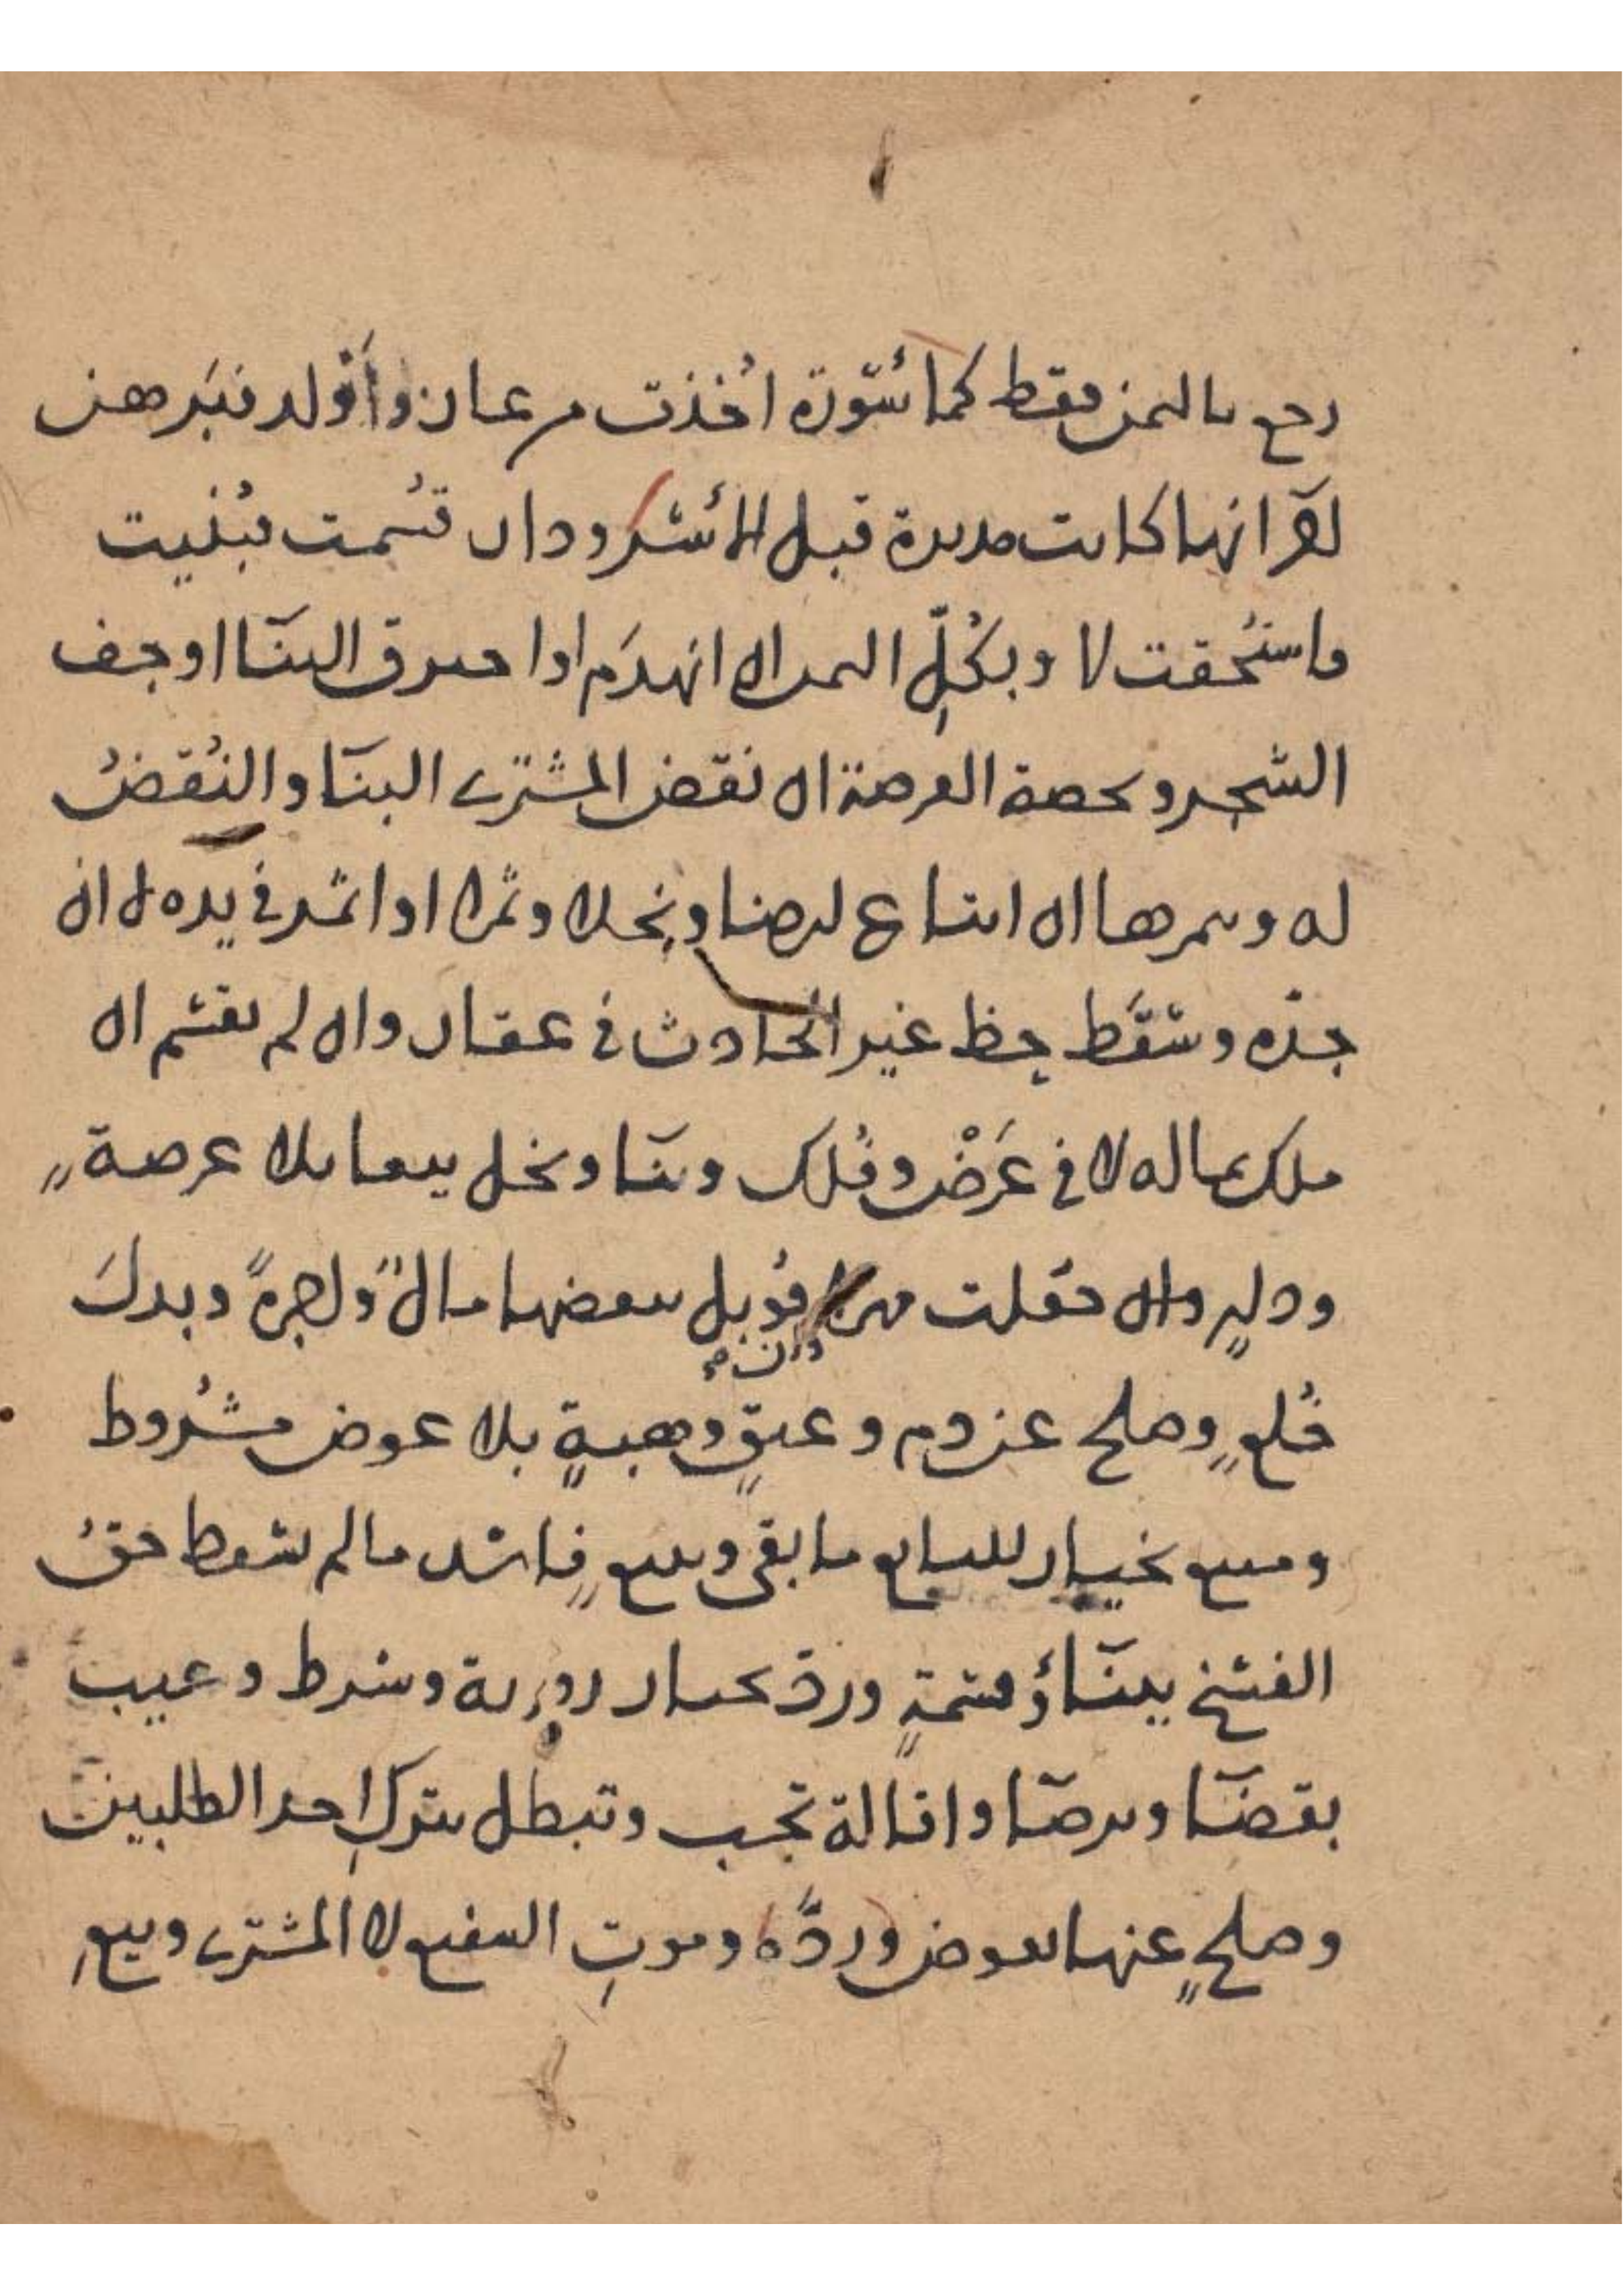 رجع بالثمن فقط كما مأسورة اخذت من غاز واولد فبرهن
لآخر انها كانت مدبرة قبل الأسر ودار قسمت فبنيت
فاستحقت لا وبكل الثمن ان انهدم او احترق البناء او جف
الشجر وبحصة العرصة ان نقض المشتري البناء والنقض
له وثمرها ان ابتاع ارضا ونخلا وثمرا او اثمر في يده لا ان
جذه وسقط حظ غير الحادث في عقار وان لم يقسم ان
ملك بما له لا في عرض وفلك وبناء ونخل بيعا بلا عرصة
ودار وان جعلت مهرا قوبل ببعضها مال او اجرة وبدل
خلع وصلح عن دم وعتق وهبة بلا عوض مشروط
ومبيع بخيار للبايع ما بقي وبيع فاسد ما لم يسقط حق
الفسخ ببناء وقسمة ورد بخيار رؤية وشرط وعيب
بقضاء وبرضا واقالة تجب وتبطل بترك احد الطلبين
وصلح عنها بعوض ورده وموت الشفيع لا المشتري وبيع